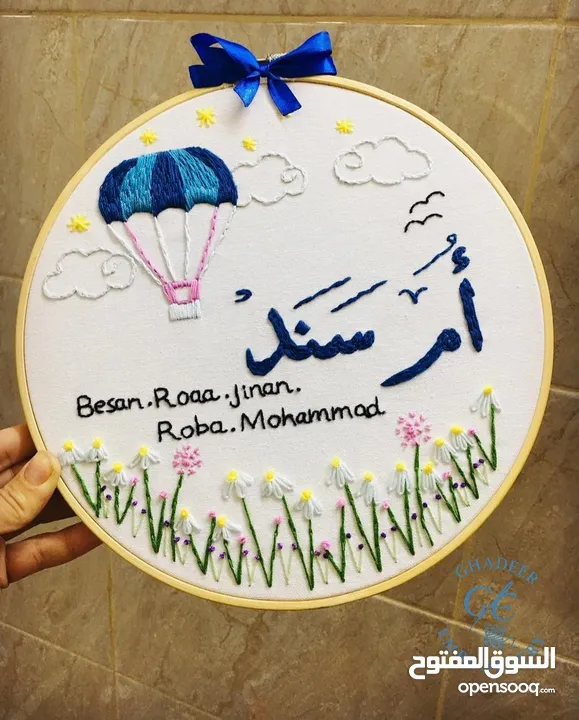 أُم سَنَدْ
Besan.Roaa.Jinan.
Roba.Mohammad
GHADEER
السوق المفتوح
opensooq.com